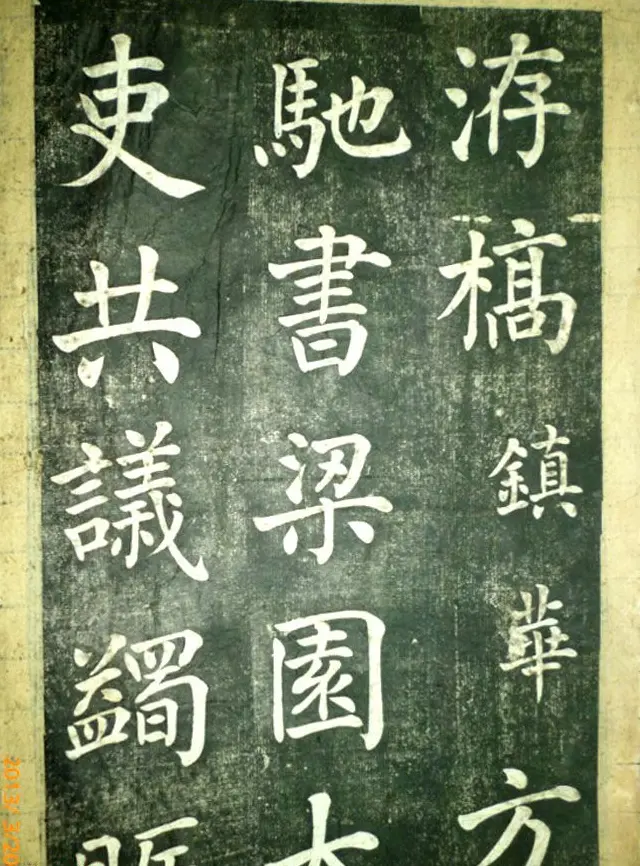 洊槁鎮華方
馳書梁園
吏共議蠲